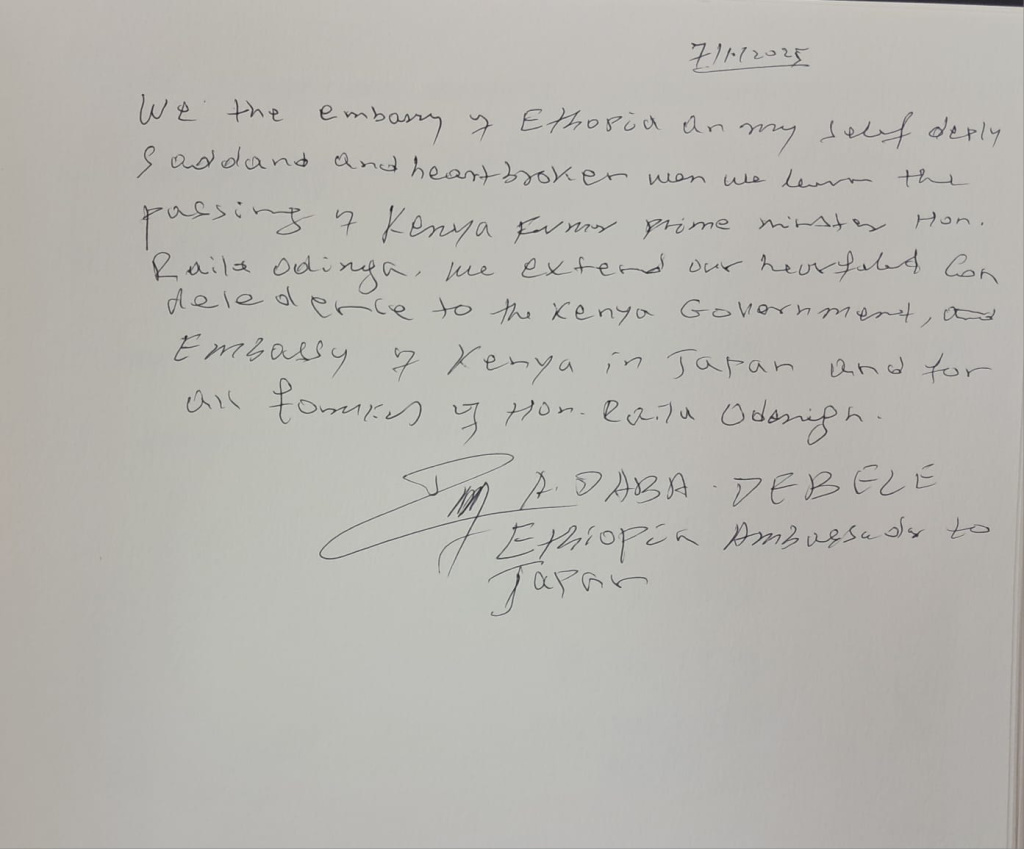 7/11/2025
We the embassy of Ethopia an my self deply
Saddand and heartbroken wen we learn the
passing of Kenya former prime minster Hon.
Raila Odinga. we extend our heartfeled Con
deledence to the Kenya Government, and
Embassy of Kenya in Japan and for
all families of Hon. Raila
A. DABA. DEBELE
Ethiopia Ambassador to
Japan